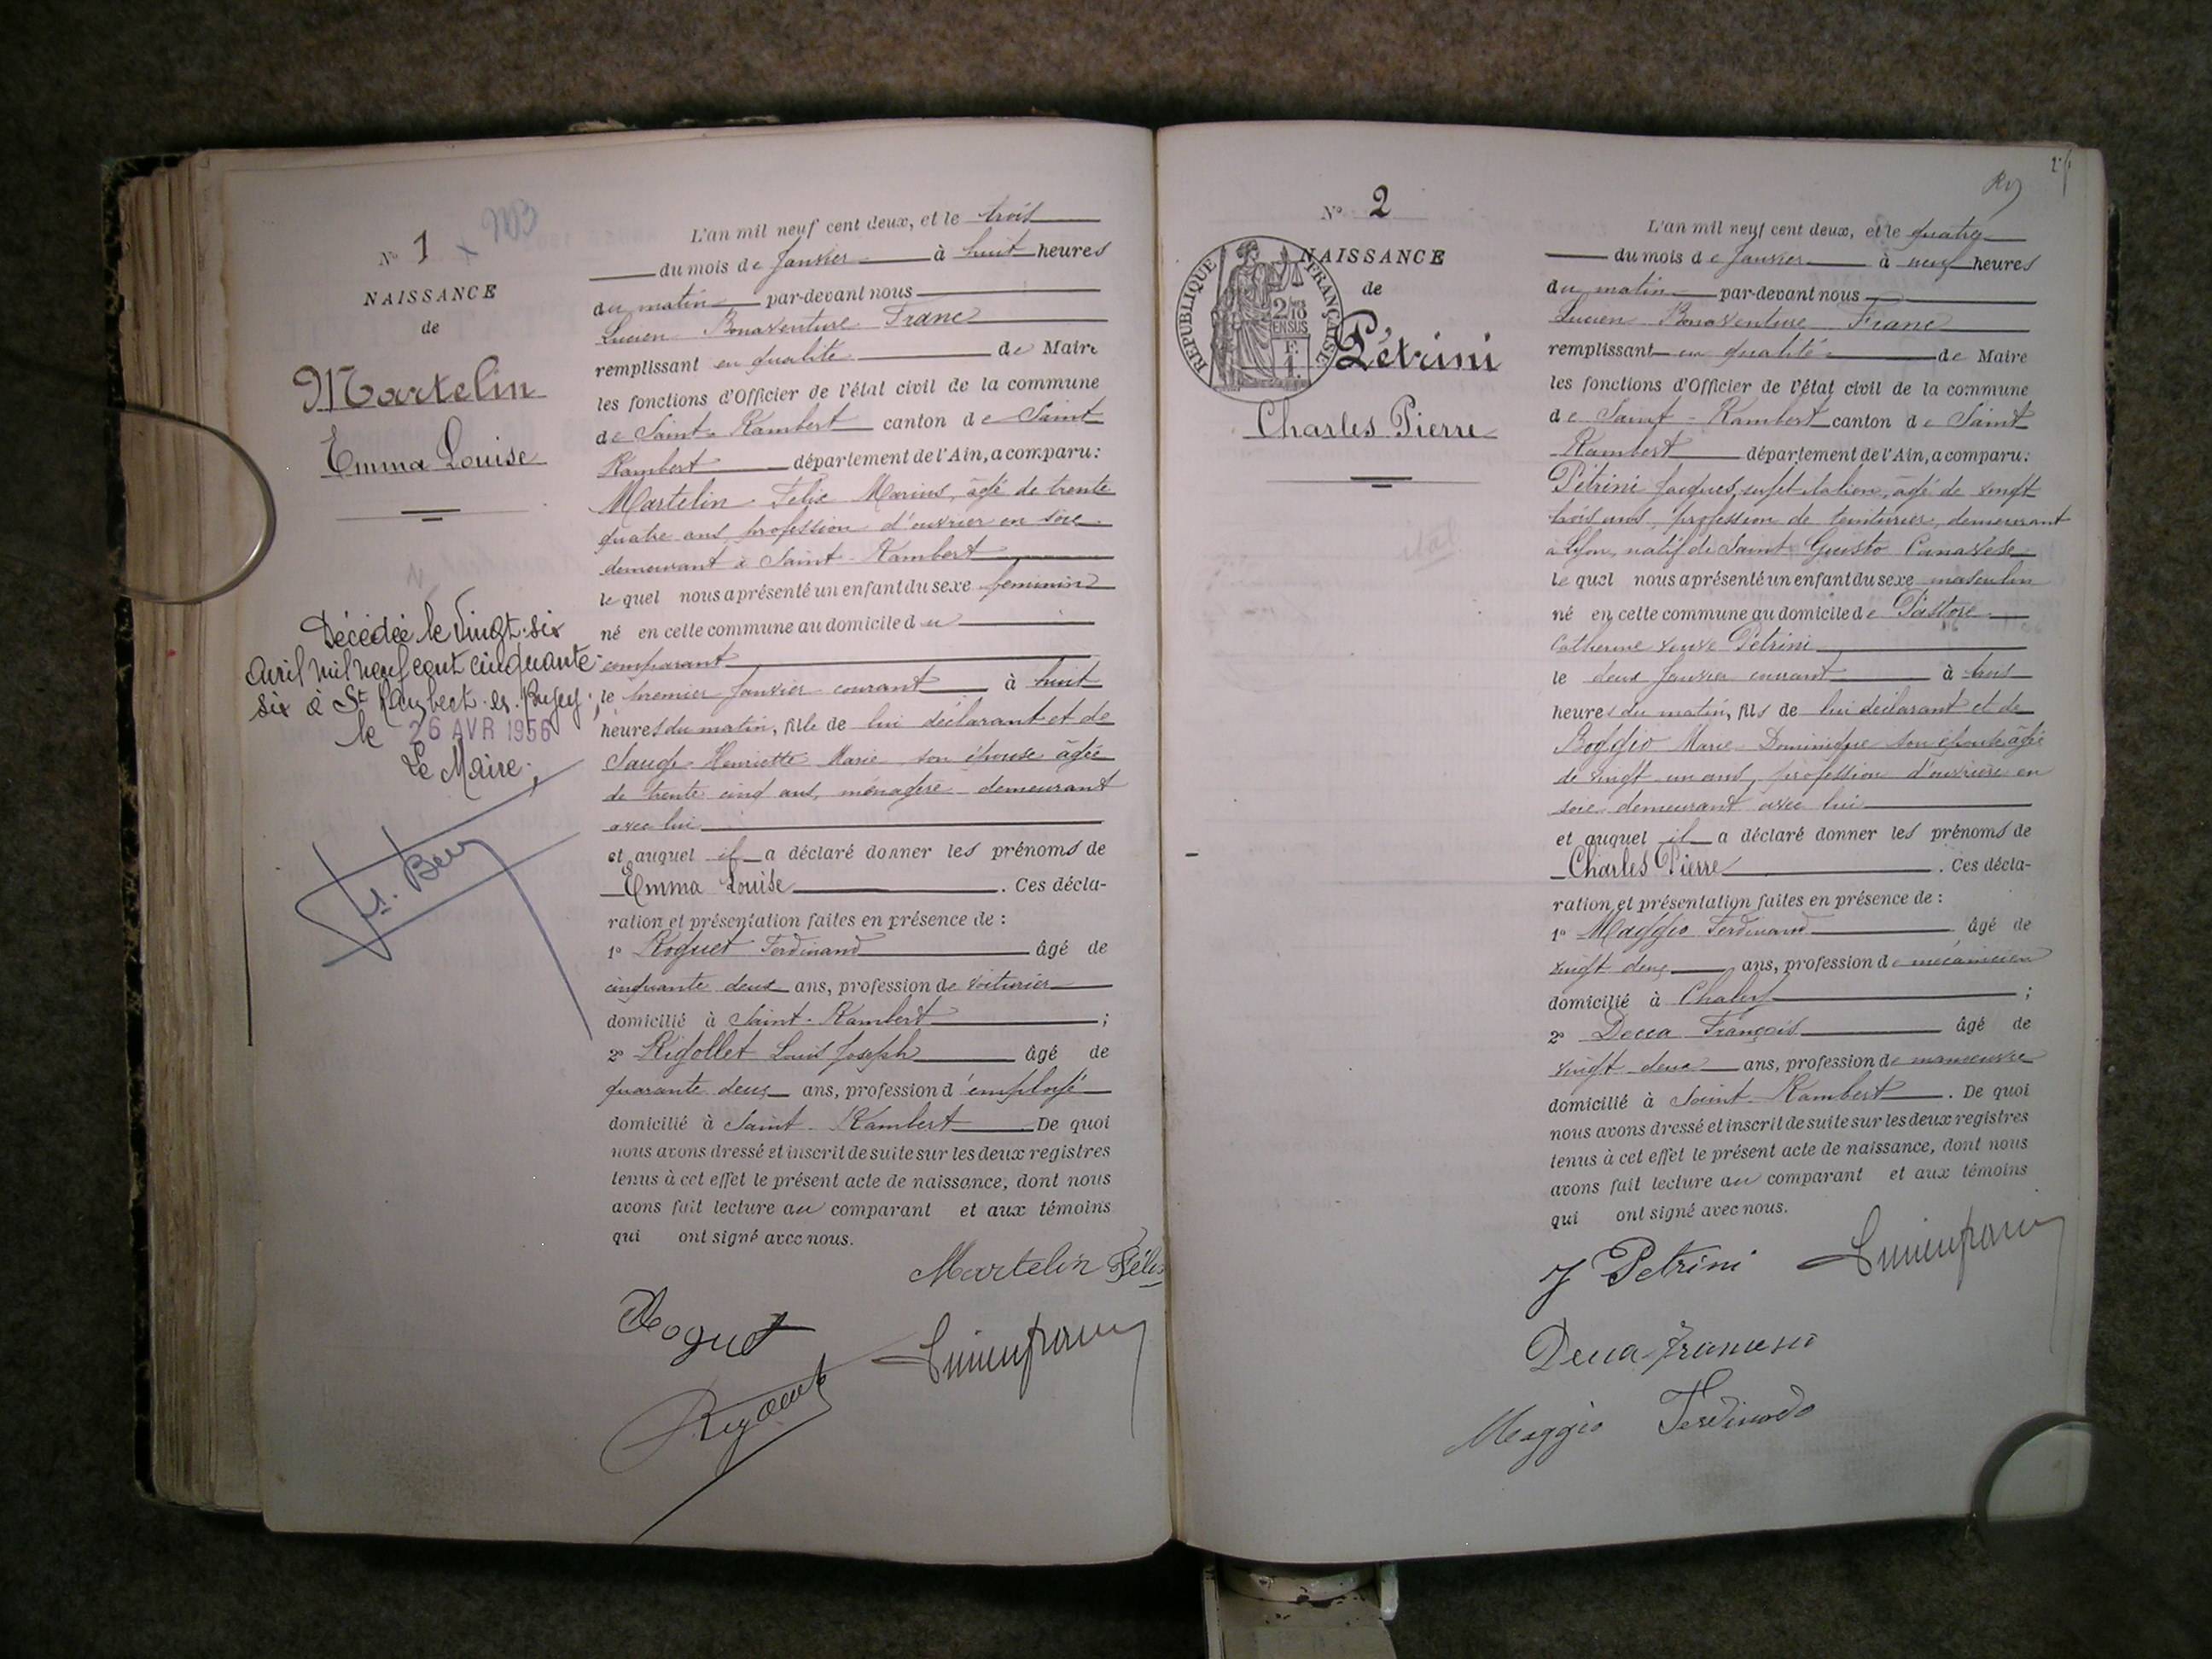 Nº 1
NAISSANCE
de
Martelin
Emma Louise
Décédée le vingt-six
avril mil neuf cent cinquante-
six à St Rambert-en-Bugey;
le 26 AVR 1956
Le Maire:
L'an mil neuf cent deux, et le trois
du mois de Janvier à huit heures
du matin par-devant nous
Lucien Bonaventure Franc
remplissant en qualité de Maire
les fonctions d'Officier de l'état civil de la commune
de Saint-Rambert canton de Saint
Rambert département de l'Ain, a comparu:
Martelin Felix Marius, âgé de trente
quatre ans profession d'ouvrier en soie
demeurant à Saint-Rambert
lequel nous a présenté un enfant du sexe feminin
né en cette commune au domicile du
comparant
le premier Janvier courant à huit
heures du matin, fille de lui déclarant et de
Henriette Marie son épouse âgée
de trente cinq ans, ménagère demeurant
avec lui
et auquel il a déclaré donner les prénoms de
Emma Louise. Ces décla-
ration et présentation faites en présence de :
1º Roguet Ferdinand âgé de
cinquante deux ans, profession de voiturier
domicilié à Saint-Rambert ;
2º Rigollet Louis Joseph âgé de
quarante deux ans, profession d'employé
domicilié à Saint-Rambert De quoi
nous avons dressé et inscrit de suite sur les deux registres
tenus à cet effet le présent acte de naissance, dont nous
avons fait lecture au comparant et aux témoins
qui ont signé avec nous.
Martelin Félix
Roguet
Lucien franc
Nº 2
NAISSANCE
de
RÉPUBLIQUE FRANÇAISE
2/10 EN SUS
F. 1.
Pétrini
Charles Pierre
L'an mil neuf cent deux, et le quatre
du mois de Janvier à neuf heures
du matin par-devant nous
Lucien Bonaventure Franc
remplissant en qualité de Maire
les fonctions d'Officier de l'état civil de la commune
de Saint-Rambert canton de Saint
Rambert département de l'Ain, a comparu:
Pétrini Jacques, sujet italien, âgé de vingt
trois ans, profession de teinturier, demeurant
à Lyon, natif de Saint Giusto Canavese
lequel nous a présenté un enfant du sexe masculin
né en cette commune au domicile de Pastore
Catherine veuve Pétrini
le deux Janvier courant à trois
heures du matin, fils de lui déclarant et de
Boggio Marie Dominique son épouse âgée
de vingt un ans, profession d'ouvrière en
soie demeurant avec lui
et auquel il a déclaré donner les prénoms de
Charles Pierre. Ces décla-
ration et présentation faites en présence de :
1º Maggio Ferdinand âgé de
vingt deux ans, profession de mécanicien
domicilié à ;
2º Decca François âgé de
vingt deux ans, profession de manoeuvre
domicilié à Saint-Rambert. De quoi
nous avons dressé et inscrit de suite sur les deux registres
tenus à cet effet le présent acte de naissance, dont nous
avons fait lecture au comparant et aux témoins
qui ont signé avec nous.
J Petrini Lucien franc
Decca Francesco
Maggio Ferdinando